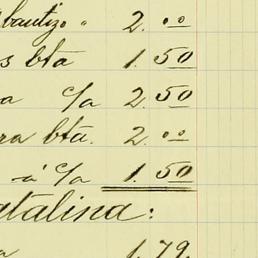 bautizo " 2.00
s bta 1.50
a c/a 2.50
ra bta. 2.00
-a' c/a 1.50
atalina:
a 1.79.